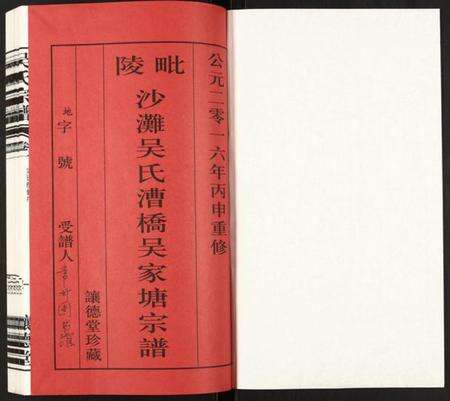 公元二零一六年丙申重修
毗陵
沙灘吴氏漕橋吴家塘宗譜
讓德堂珍藏
地字號
受譜人